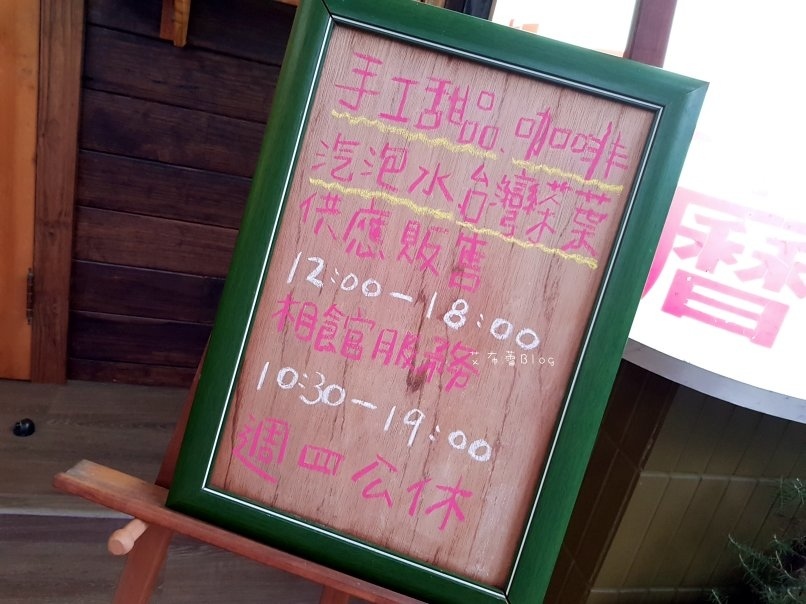 手工甜品.咖啡
汽泡水台灣茶葉
供應販售
12:00-18:00
相館服務
10:30-19:00
週四公休
艾布蕾Blog
曆